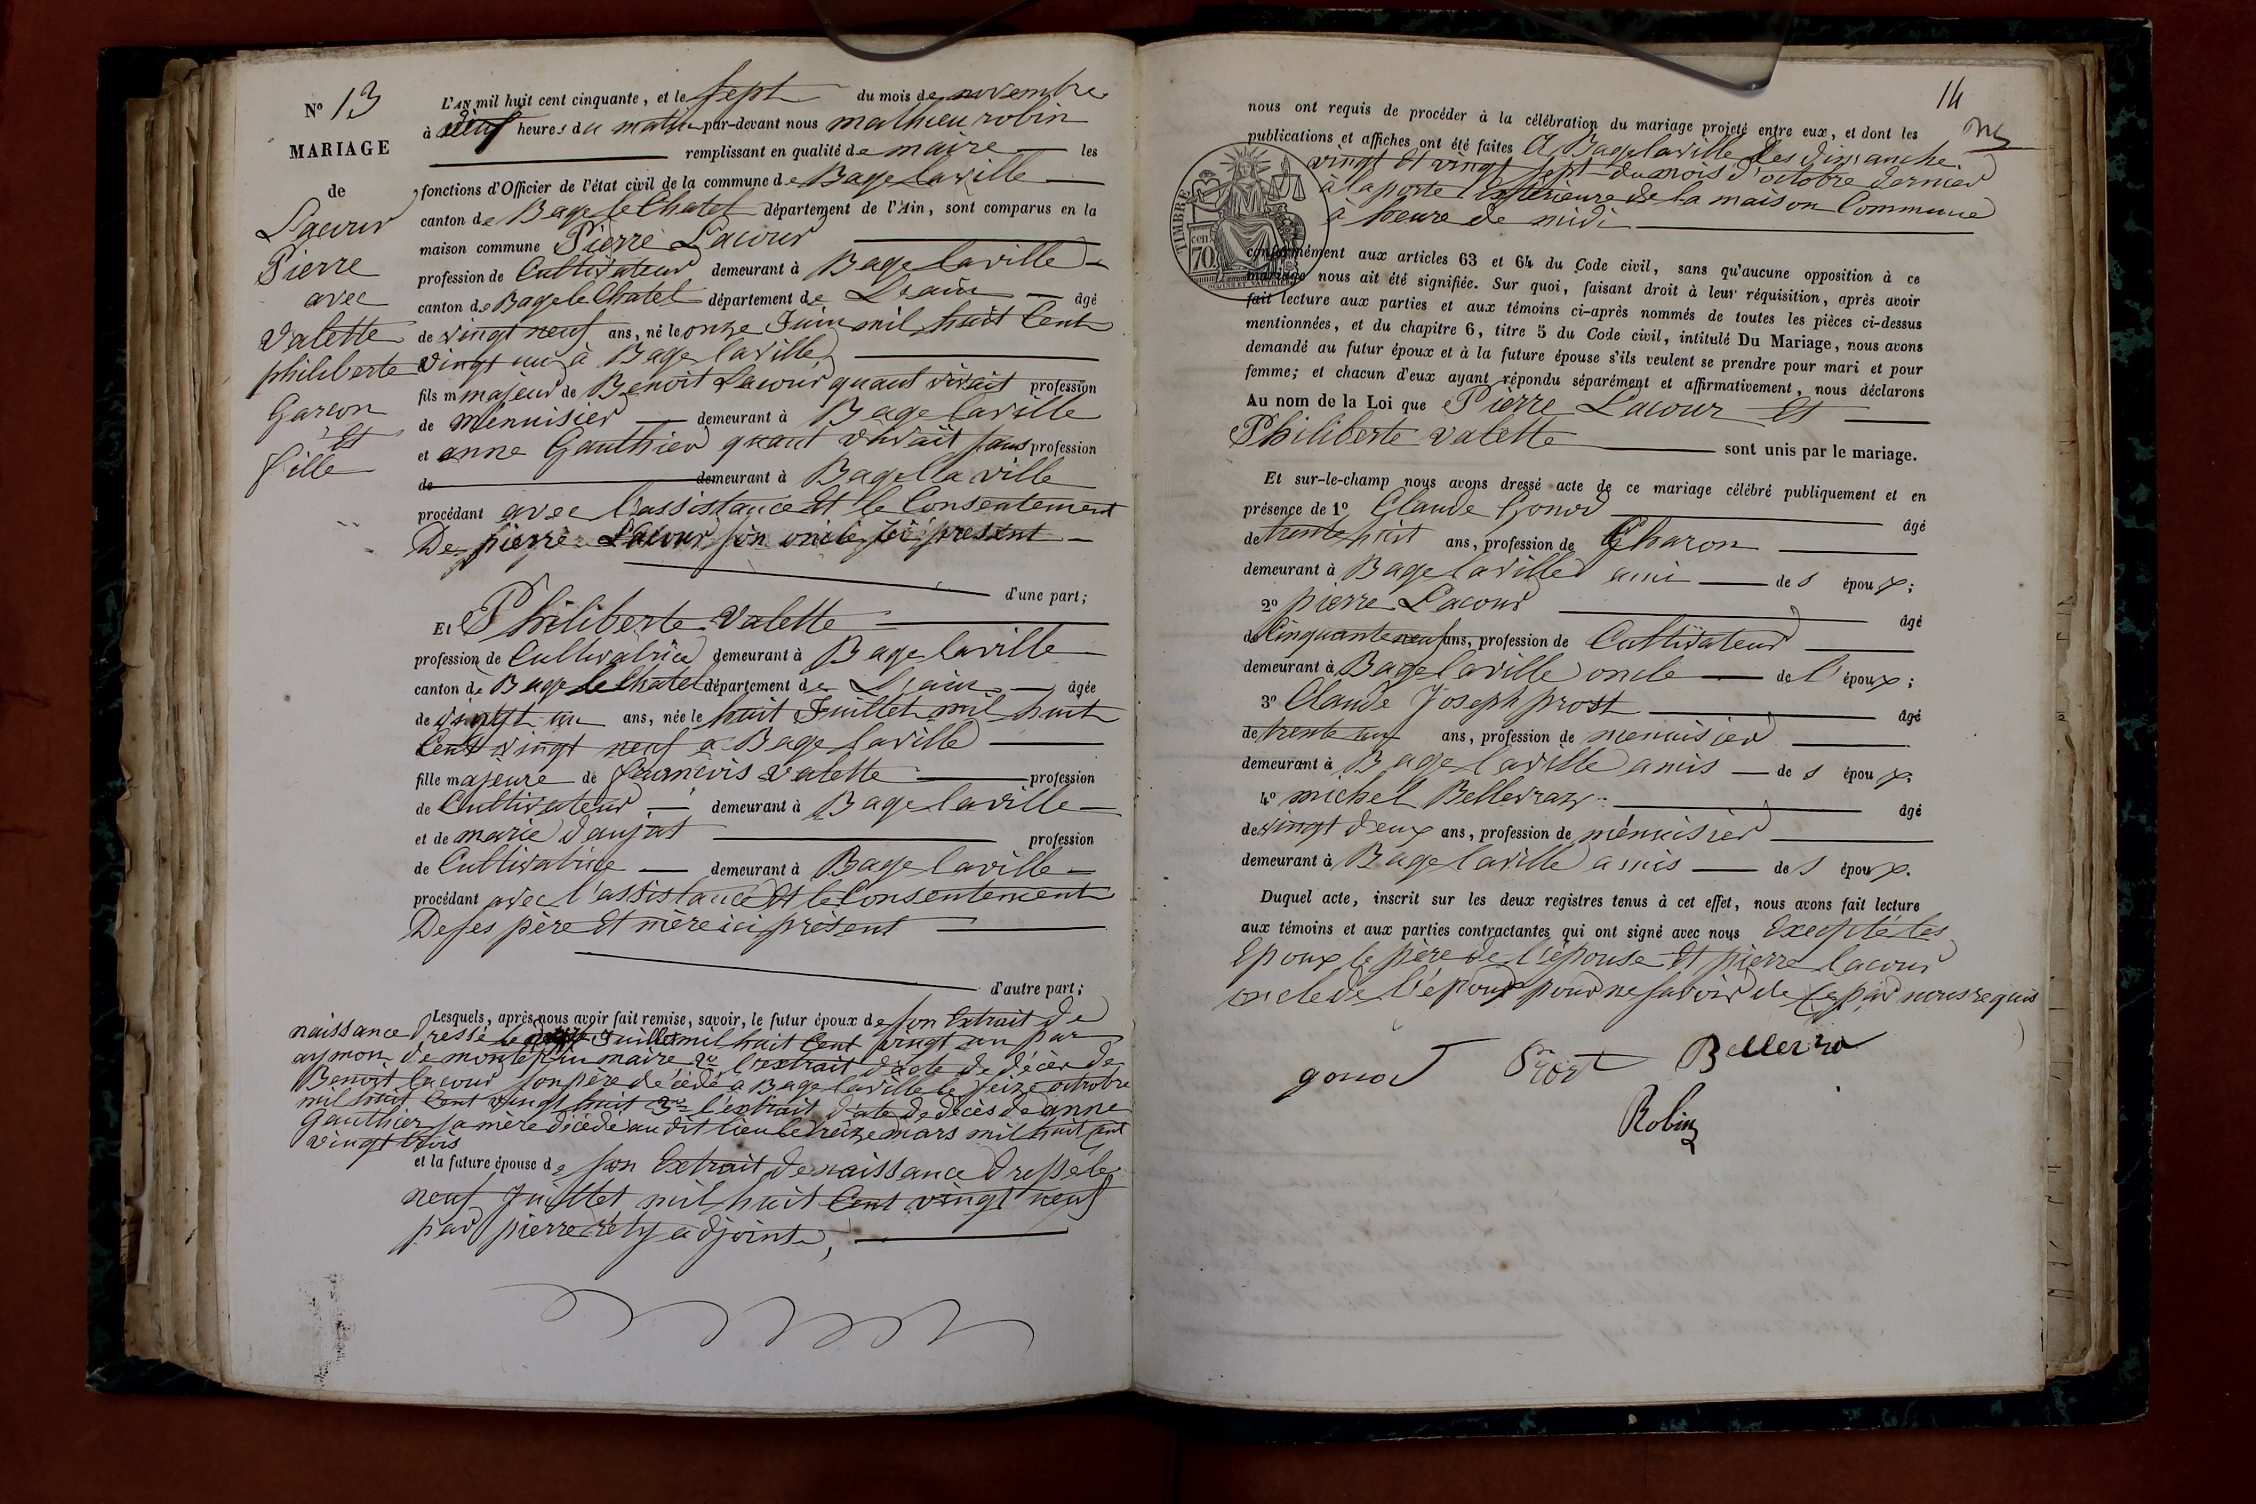 N° 13
MARIAGE
de
Lacour
Pierre
avec
Valette
philiberte
Garçon
Et
fille
L'AN mil huit cent cinquante, et le sept du mois de novembre
à heures du matin par-devant nous mathieu robin
remplissant en qualité de maire les
fonctions d'Officier de l'état civil de la commune de Bage laville
canton de Bage le Chatel département de l'Ain, sont comparus en la
maison commune Pierre Lacour
profession de Cultivateur demeurant à Bage laville
canton de Bage le Chatel département de Lain âgé
de vingt neuf ans, né le onze Juin mil huit Cent
vingt un à Bage laville
fils majeur de Benoit Lacour quant vivait profession
de menuisier demeurant à Bage laville
et anne Gauthier quant vivait sans profession
de demeurant à Bage la ville
procédant avec l'assistance Et le Consentement
De pierre Lacour son oncle ici present
d'une part;
Et Philiberte Valette
profession de Cultivatrice demeurant à Bage laville
canton de Bage le Chatel département de Lain âgée
de vingt un ans, née le huit Juillet mil huit
Cent vingt neuf a Bage laville
fille majeure de francois Valette profession
de Cultivateur demeurant à Bage laville
et de marie daujat profession
de Cultivatrice demeurant à Bage laville
procédant avec l'assistance Et le Consentement
De ses père Et mère ici présent
d'autre part;
Lesquels, après nous avoir fait remise, savoir, le futur époux de son Extrait de
naissance dressé le Juillet mil huit Cent vingt un par
aymon de montépin maire 2° l'extrait d'acte de décès de
Benoit lacour son père décédé a Bage laville le seize octobre
mil huit Cent vingt huit 3° l'extrait d'acte de décès de anne
Gauthier sa mère décédé au dit lieu le treize mars mil huit cent
vingt trois
et la future épouse de son Extrait de naissance dressé le
neuf Juillet mil huit Cent vingt neuf
par pierre réty adjoint,
14
nous ont requis de procéder à la célébration du mariage projeté entre eux, et dont les
publications et affiches ont été faites A Bage laville Les dimanche
vingt Et vingt sept du mois d'octobre dernier
à la porte Extérieure de la maison Commune
à heure de midi
TIMBRE
70
cen.
conformément aux articles 63 et 64 du Code civil, sans qu'aucune opposition à ce
mariage nous ait été signifiée. Sur quoi, faisant droit à leur réquisition, après avoir
fait lecture aux parties et aux témoins ci-après nommés de toutes les pièces ci-dessus
mentionnées, et du chapitre 6, titre 5 du Code civil, intitulé Du Mariage, nous avons
demandé au futur époux et à la future épouse s'ils veulent se prendre pour mari et pour
femme; et chacun d'eux ayant répondu séparément et affirmativement, nous déclarons
Au nom de la Loi que Pierre Lacour Et
Philiberte Valette sont unis par le mariage.
Et sur-le-champ nous avons dressé acte de ce mariage célébré publiquement et en
présence de 1° Claude Gonod âgé
de trente huit ans, profession de Charon
demeurant à Bage laville ami des époux;
2° pierre Lacour âgé
de Cinquante neuf ans, profession de Cultivateur
demeurant à Bage laville oncle de l'époux;
3° Claude Joseph prost âgé
de trente un ans, profession de menuisier
demeurant à Bage laville amis des époux;
4° michel Bellevrat âgé
de vingt deux ans, profession de ménuisier
demeurant à Bage laville amis des époux.
Duquel acte, inscrit sur les deux registres tenus à cet effet, nous avons fait lecture
aux témoins et aux parties contractantes qui ont signé avec nous Excepté les
Epoux le père de l'épouse Et pierre lacour
oncle de l'époux pour ne savoir de ce par nous requis
gonod Prost Bellevra
Robin